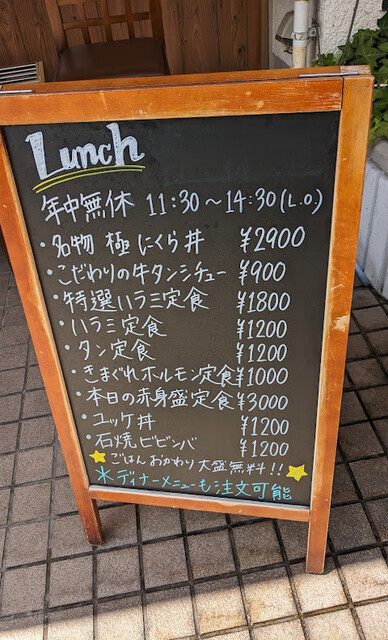 Lunch
年中無休 11:30〜14:30(L.O.)
・名物 極 にくら丼 ¥2900
・こだわりの牛タンシチュー ¥900
・特選ハラミ定食 ¥1800
・ハラミ定食 ¥1200
・タン定食 ¥1200
・きまぐれホルモン定食 ¥1000
・本日の赤身盛定食 ¥3000
・ユッケ丼 ¥1200
・石焼ビビンバ ¥1200
★ごはんおかわり大盛無料!!★
※ディナーメニューも注文可能